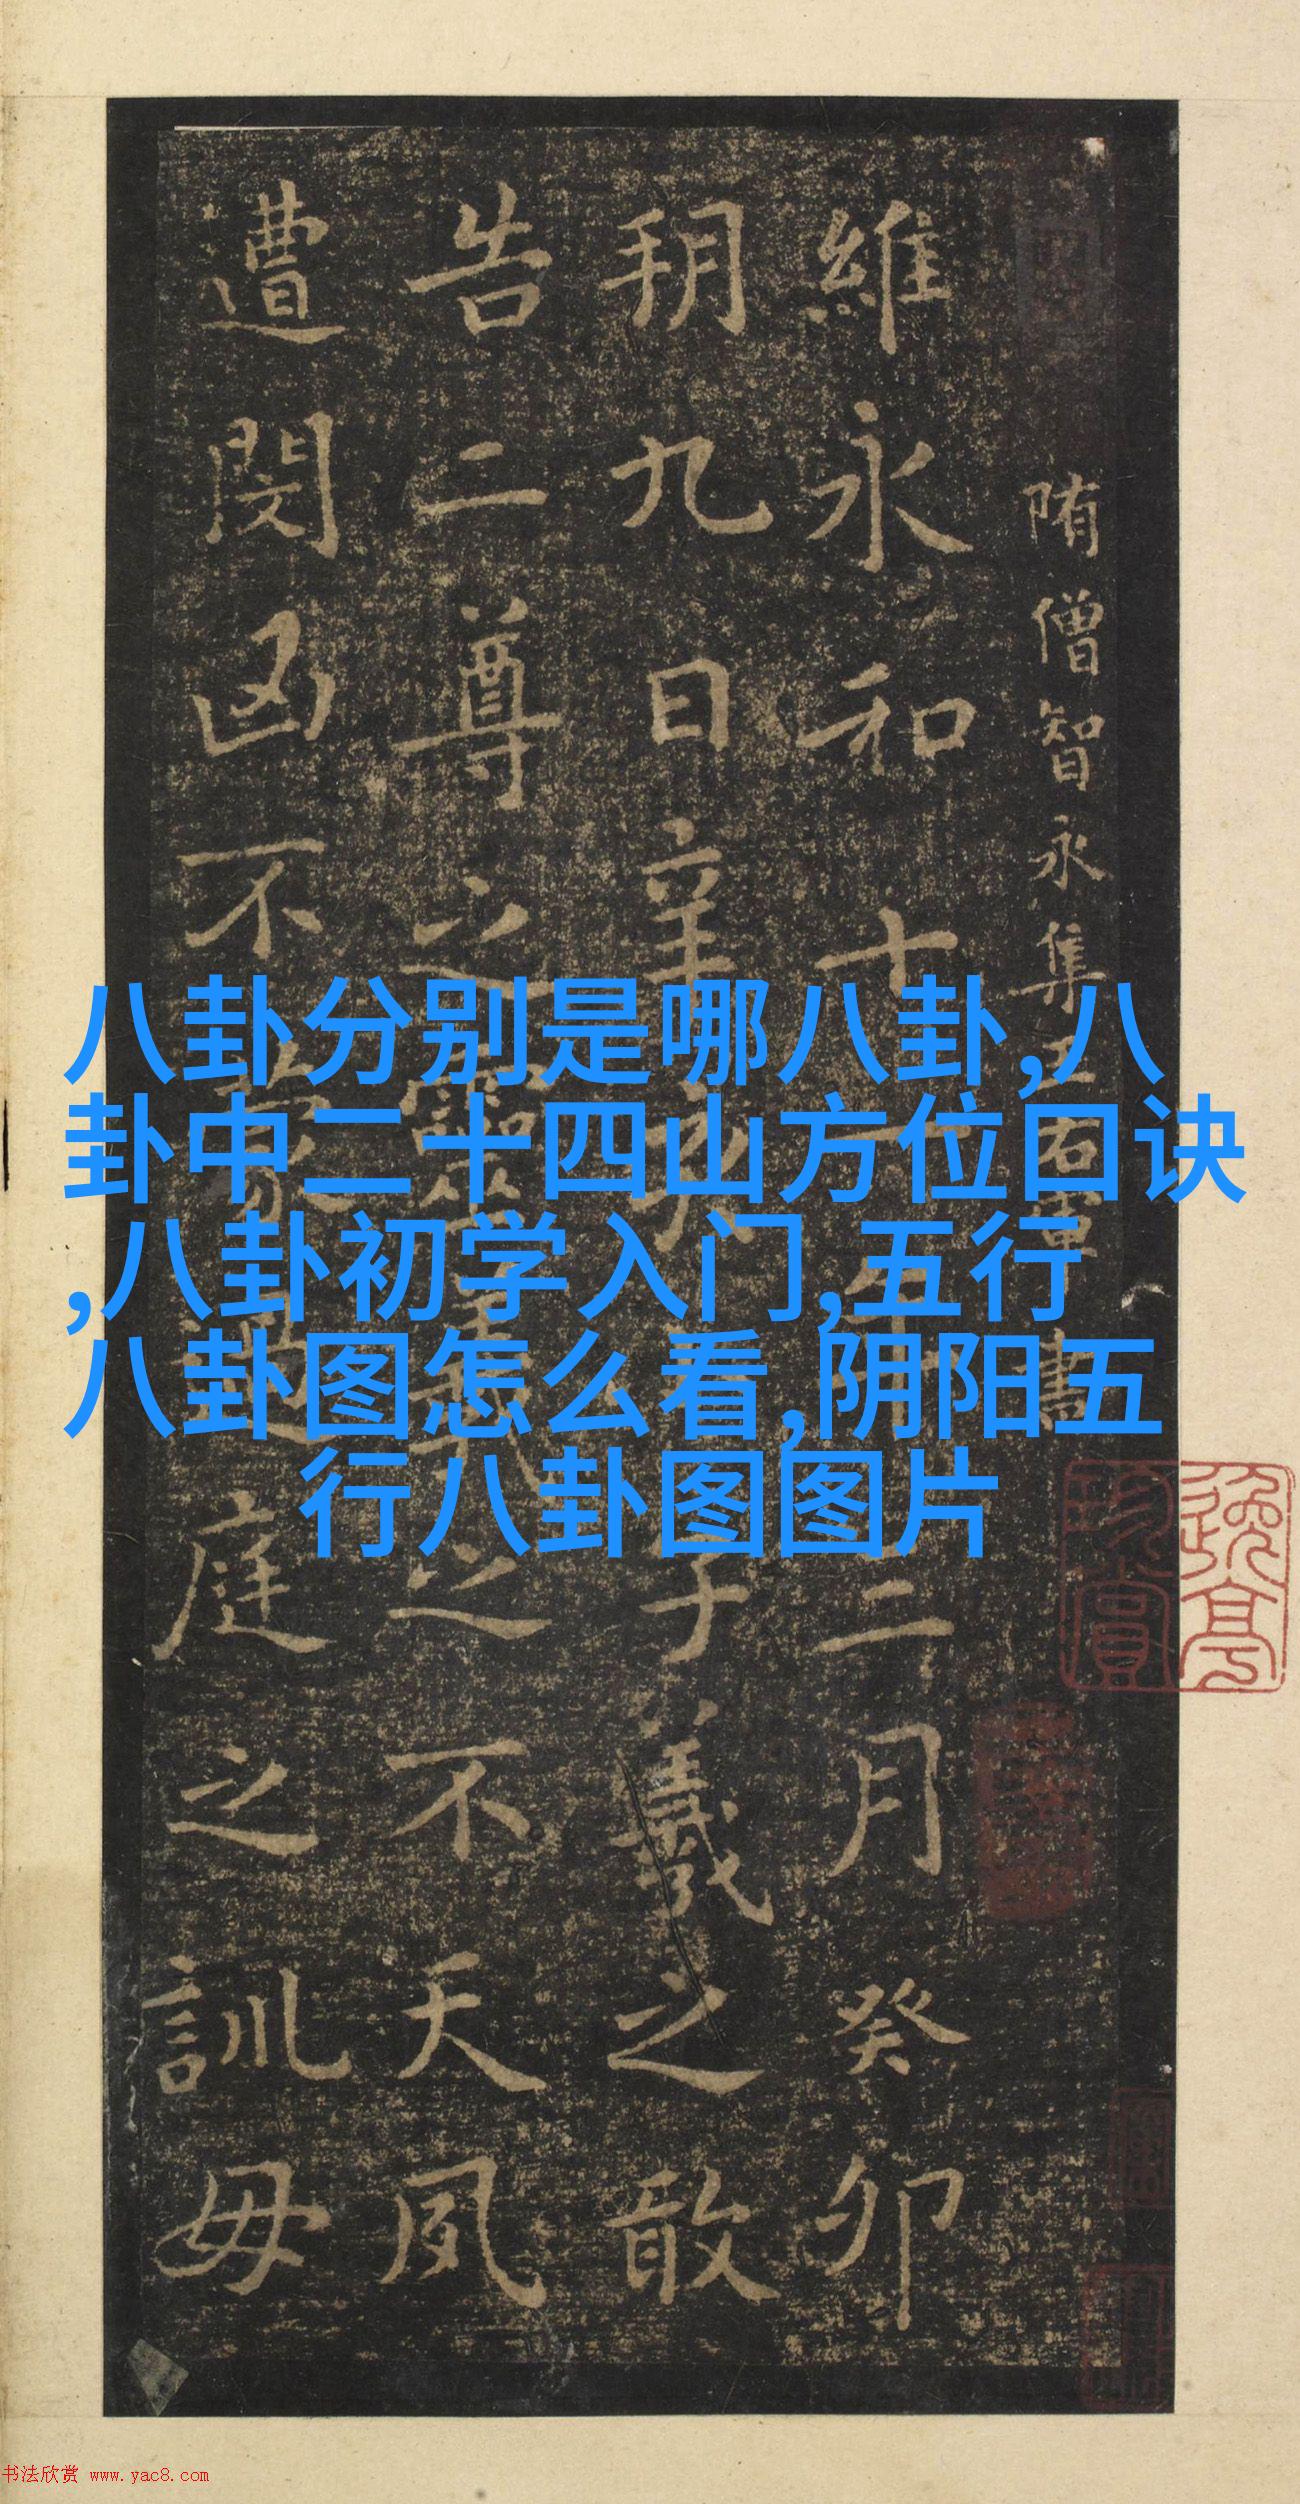 隋僧智永集王右軍書
維永和十一年三月癸卯
朔九日辛亥小子羲之敢
告二尊之靈羲之不天夙
遭閔凶不蒙過庭之訓毋
八卦分别是哪八卦,八
卦中二十四山方位口诀
,八卦初学入门,五行
八卦图怎么看,阴阳五
行八卦图图片
珍賞
书法欣赏 www.yac8.com